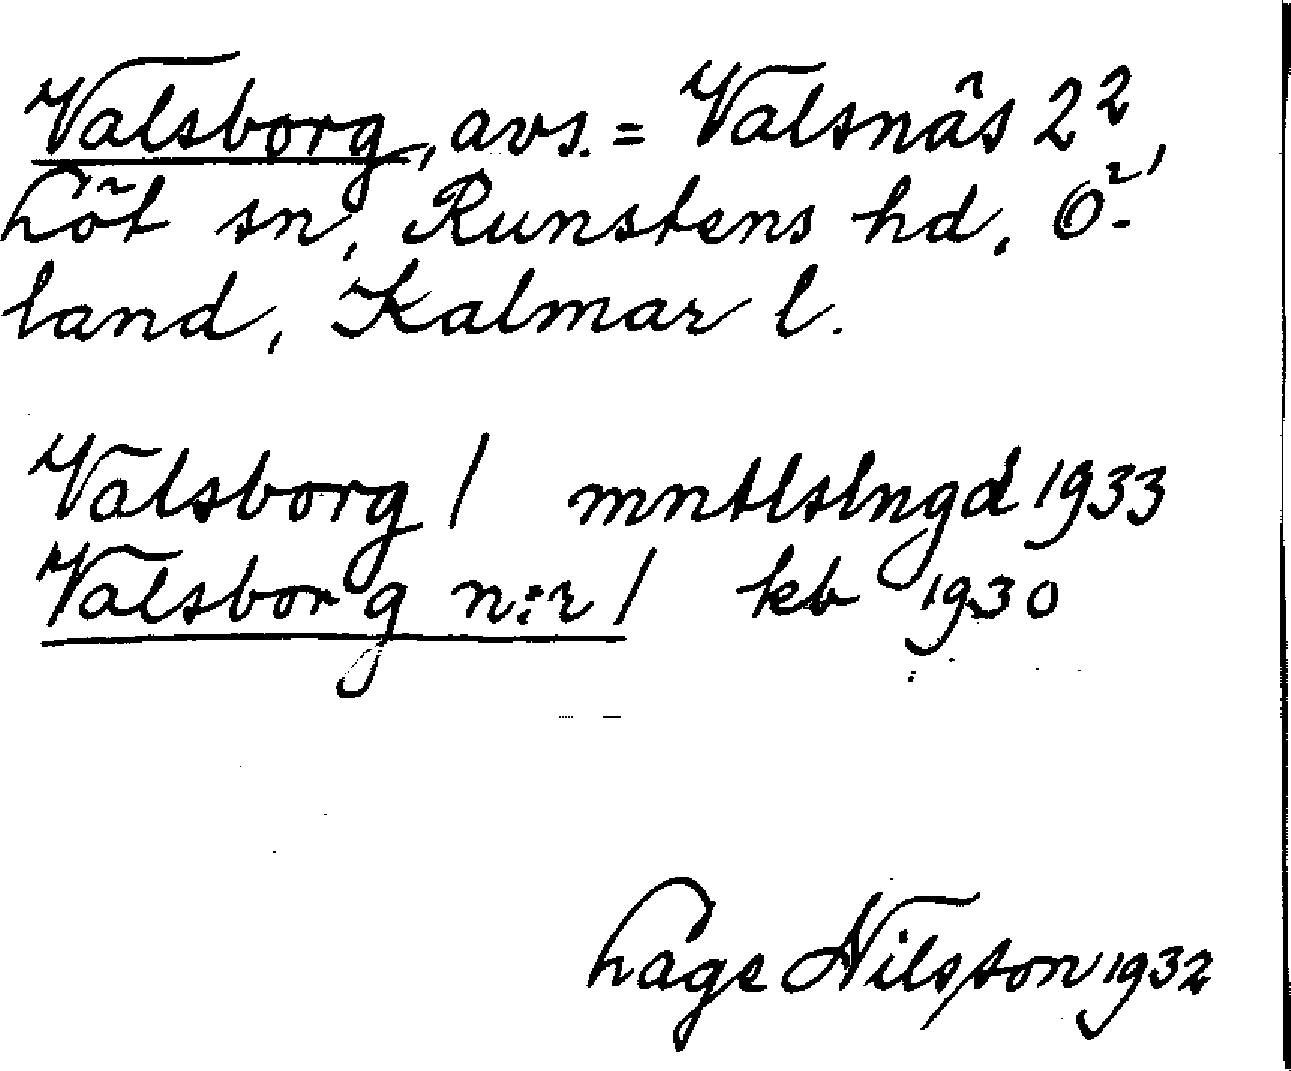 Valsborg, avs. = Valsnäs 2²,
Löt sn, Runstens hd, Ö-
land, Kalmar l.
Valsborg 1 mntlslngd 1933
Valsborg n:r 1 kb 1930
Lage Nilsson 1932